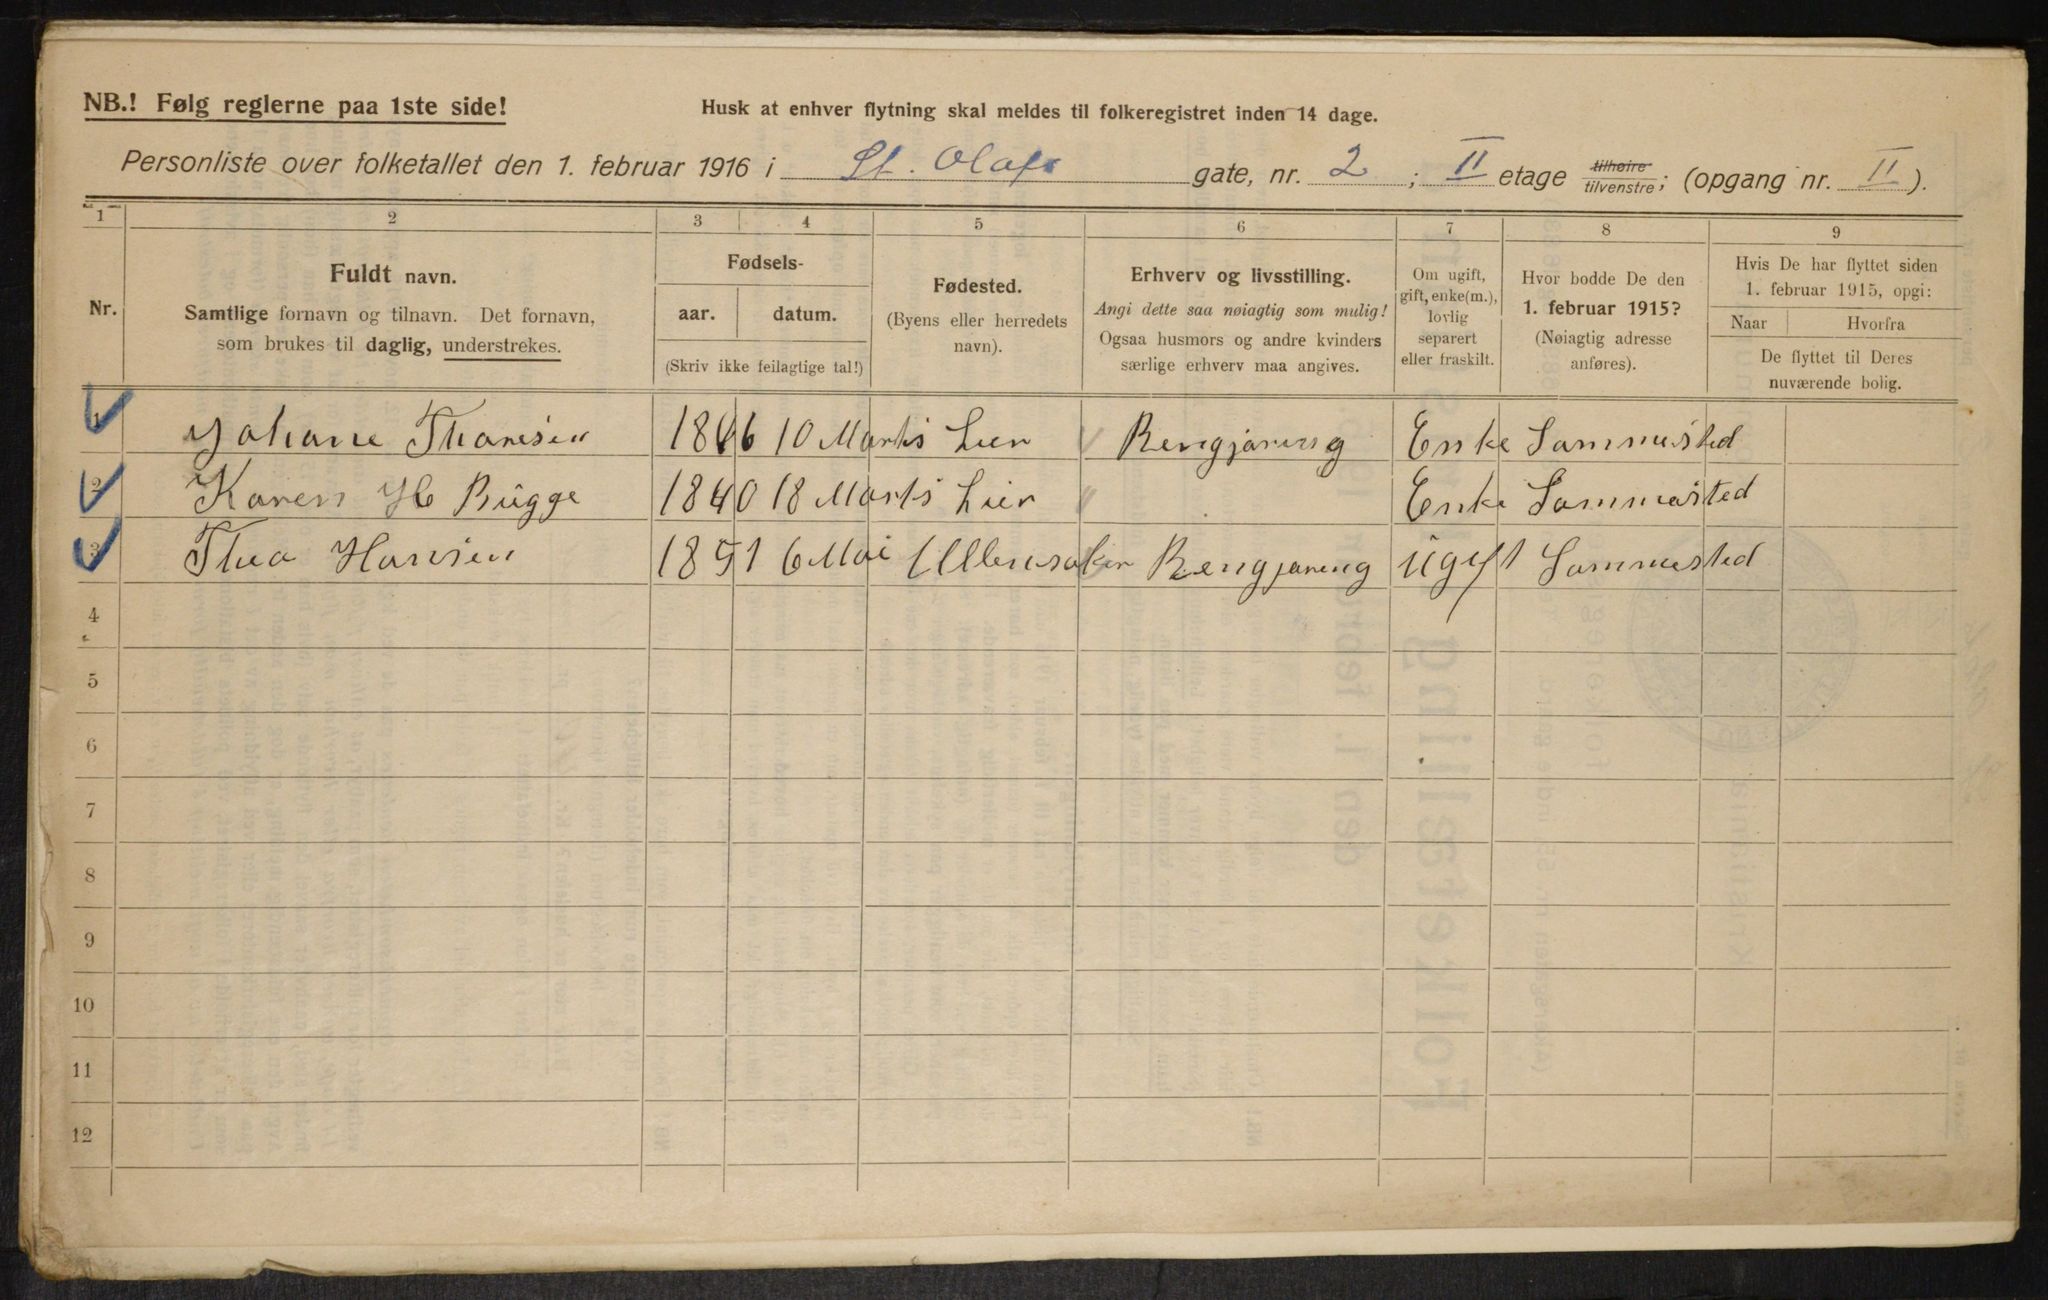 NB.! Følg reglerne paa 1ste side!
Husk at enhver flytning skal meldes til folkeregistret inden 14 dage.
Personliste over folketallet den 1. februar 1916 i St. Olafs gate, nr. 2 ; II etage tilhøire tilvenstre; (opgang nr. II ).
1 2 3 4 5 6 7 8 9
Nr.
Fuldt navn.
Samtlige fornavn og tilnavn. Det fornavn,
som brukes til daglig, understrekes.
Fødsels-
aar. datum.
(Skriv ikke feilagtige tal!)
Fødested.
(Byens eller herredets
navn).
Erhverv og livsstilling.
Angi dette saa nøiagtig som mulig!
Ogsaa husmors og andre kvinders
særlige erhverv maa angives.
Om ugift,
gift, enke(m.),
lovlig
separert
eller fraskilt.
Hvor bodde De den
1. februar 1915?
(Nøiagtig adresse
anføres).
Hvis De har flyttet siden
1. februar 1915, opgi:
Naar Hvorfra
De flyttet til Deres
nuværende bolig.
1 Johane Thoresen 1846 10 Marts Lier Rengjøring Enke Sammested
2 Karen H Bugge 1840 18 Marts Lier Enke Sammested
3 Thea Hansen 1851 6 Mai Ullensaker Rengjøring Ugift Sammested
4
5
6
7
8
9
10
11
12